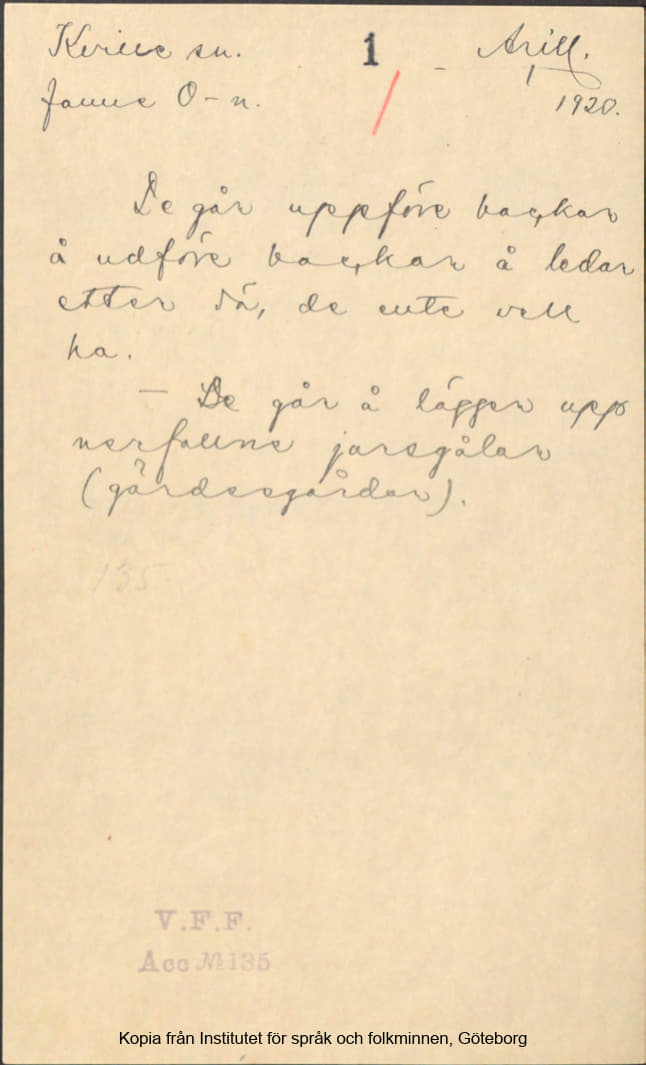 Kville sn. 1 - Arill.
Janne O-n. 1920.
De går uppföre backar
å udföre backar å ledar
etter då, de ente vell
ha.
— De går å läggen upp
nerfallne jarsgålar
(gärdesgårdar).
135
V.F.F.
Acc № 135
Kopia från Institutet för språk och folkminnen, Göteborg